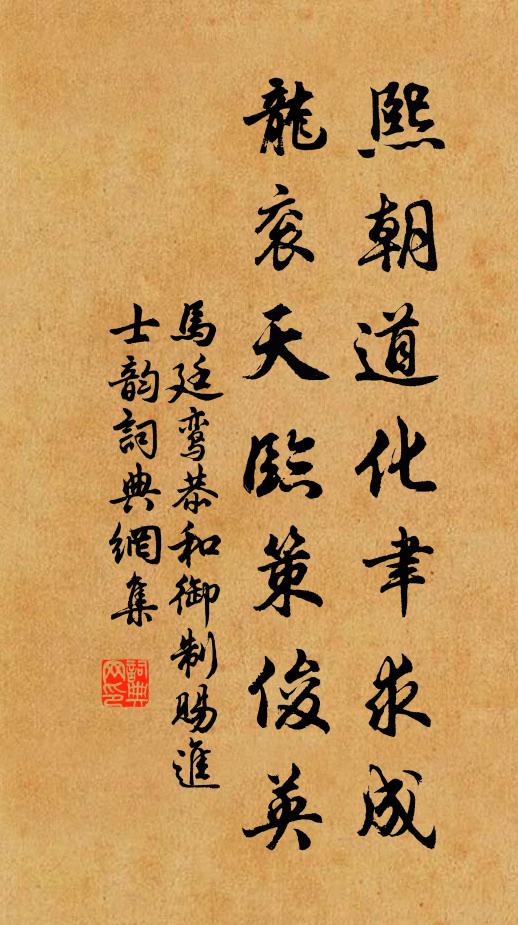 熙朝道化聿求成
龍衮天臨策俊英
馬廷鸾恭和御制賜進
士韵詞典網集
詞典网印